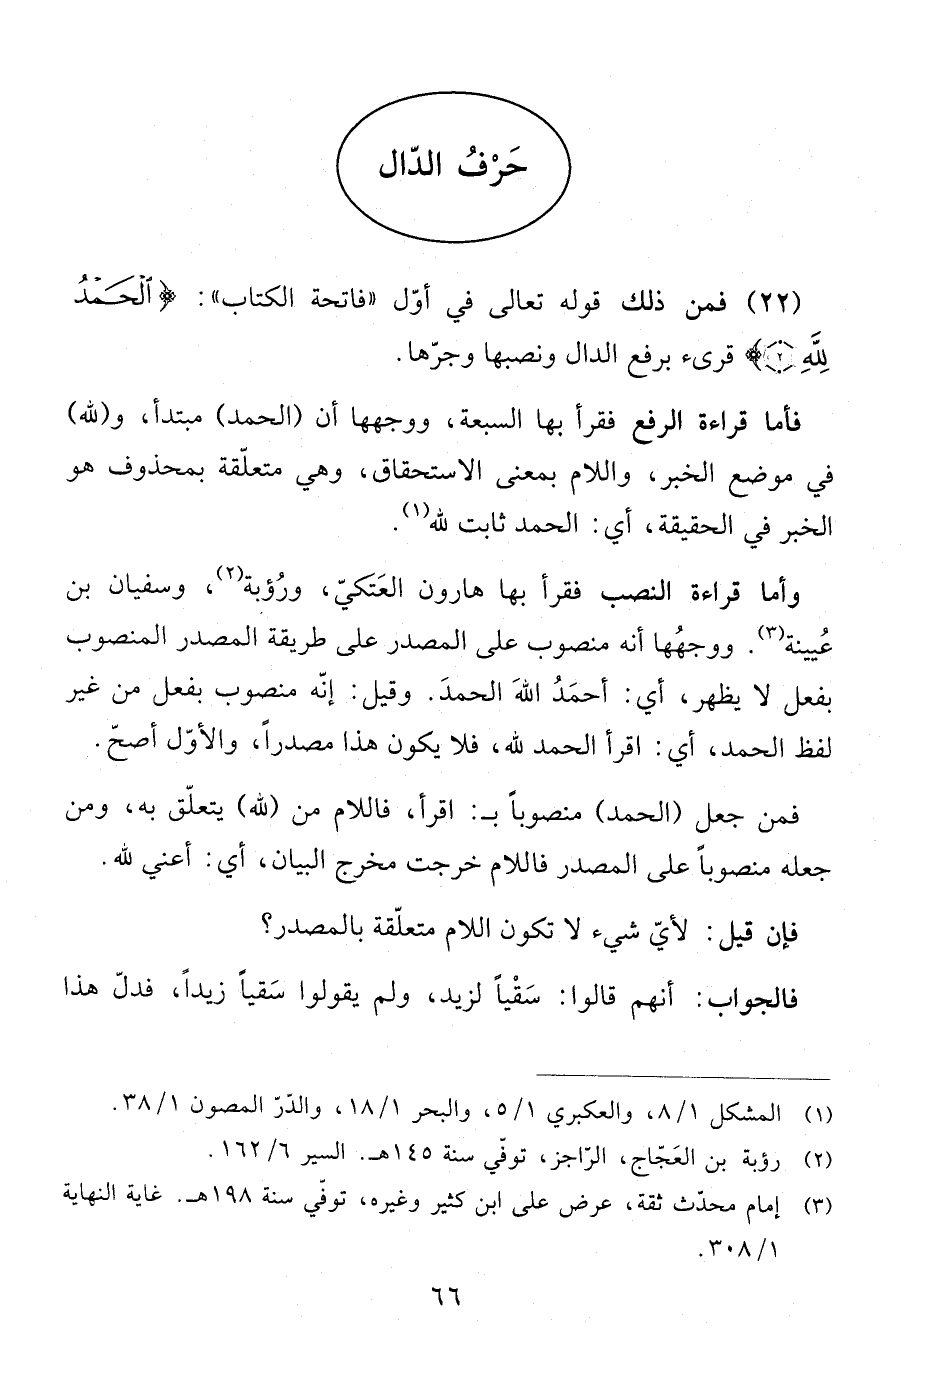 حَرْفُ الدّال
(٢٢) فمن ذلك قوله تعالى في أوّل «فاتحة الكتاب»: ﴿ٱلْحَمْدُ
لِلَّهِ ٢﴾ قرىء برفع الدال ونصبها وجرّها.
فأما قراءة الرفع فقرأ بها السبعة، ووجهها أن (الحمد) مبتدأ، و(لله)
في موضع الخبر، واللام بمعنى الاستحقاق، وهي متعلّقة بمحذوف هو
الخبر في الحقيقة، أي: الحمد ثابت لله(١).
وأما قراءة النصب فقرأ بها هارون العَتَكيّ، ورُؤبة(٢)، وسفيان بن
عُيينة(٣). ووجهُها أنه منصوب على المصدر على طريقة المصدر المنصوب
بفعل لا يظهر، أي: أحمَدُ اللهَ الحمدَ. وقيل: إنّه منصوب بفعل من غير
لفظ الحمد، أي: اقرأ الحمد لله، فلا يكون هذا مصدراً، والأوّل أصحّ.
فمن جعل (الحمد) منصوباً بـ: اقرأ، فاللام من (لله) يتعلّق به، ومن
جعله منصوباً على المصدر فاللام خرجت مخرج البيان، أي: أعني لله.
فإن قيل: لأيّ شيء لا تكون اللام متعلّقة بالمصدر؟
فالجواب: أنهم قالوا: سَقْياً لزيد، ولم يقولوا سَقياً زيداً، فدلّ هذا
(١) المشكل ٨/١، والعكبري ٥/١، والبحر ١٨/١، والدّرّ المصون ٣٨/١.
(٢) رؤبة بن العَجّاج، الرّاجز، توفّي سنة ١٤٥هـ. السير ١٦٢/٦.
(٣) إمام محدّث ثقة، عرض على ابن كثير وغيره، توفّي سنة ١٩٨هـ. غاية النهاية
٣٠٨/١.
٦٦